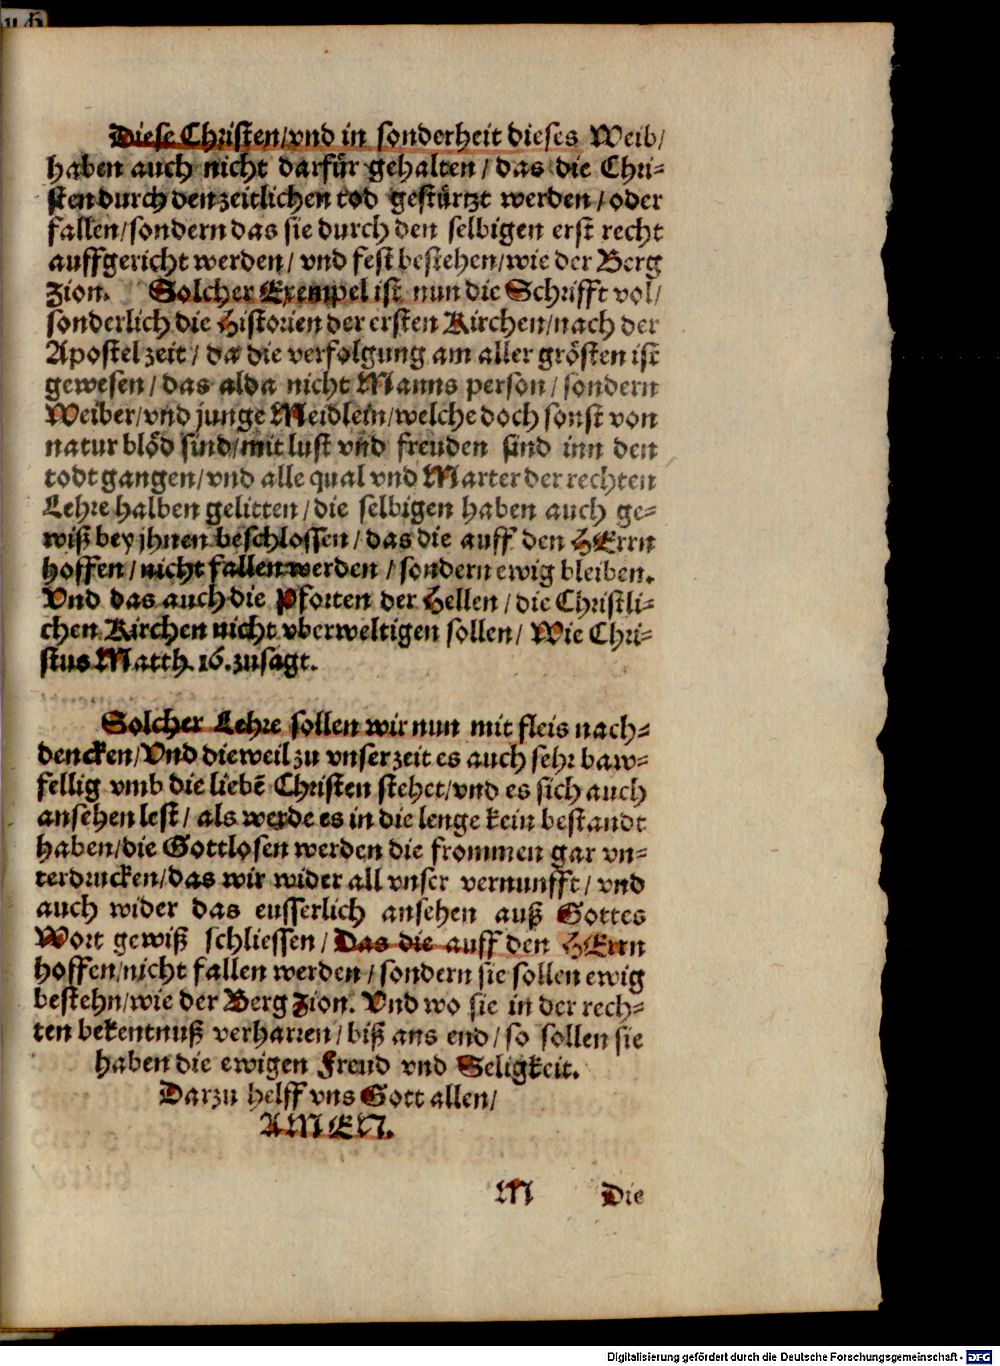 Diese Christen/vnd in sonderheit dieses Weib/
haben auch nicht darfür gehalten/das die Chri-
sten durch den zeitlichen tod gestürtzt werden/oder
fallen/sondern das sie durch den selbigen erst recht
auffgericht werden/vnd fest bestehen/wie der Berg
Zion. Solcher Exempel ist nun die Schrifft vol/
sonderlich die Historien der ersten Kirchen/nach der
Apostel zeit/da die verfolgung am aller grösten ist
gewesen/das alda nicht Manns person/sondern
Weiber/vnd junge Meidlein/welche doch sonst von
natur blöd sind/mit lust vnd freuden sind inn den
todt gangen/vnd alle qual vnd Marter der rechten
Lehre halben gelitten/die selbigen haben auch ge-
wiß bey jhnen beschlossen/das die auff den HErrn
hoffen/nicht fallen werden/sondern ewig bleiben.
Vnd das auch die Pforten der Hellen/die Christli-
chen Kirchen nicht vberweltigen sollen/Wie Chri-
stus Matth.16.zusagt.
Solcher Lehre sollen wir nun mit fleis nach-
dencken/Vnd dieweil zu vnser zeit es auch sehr baw-
fellig vmb die liebē Christen stehet/vnd es sich auch
ansehen lest/als werde es in die lenge kein bestandt
haben/die Gottlosen werden die frommen gar vn-
terdrucken/das wir wider all vnser vernunfft/vnd
auch wider das eusserlich ansehen auß Gottes
Wort gewiß schliessen/Das die auff den HErrn
hoffen/nicht fallen werden/sondern sie sollen ewig
bestehn/wie der Berg Zion. Vnd wo sie in der rech-
ten bekentnuß verharren/biß ans end/so sollen sie
haben die ewigen Freud vnd Seligkeit.
Darzu helff vns Gott allen/
AMEN.
M Die
Digitalisierung gefördert durch die Deutsche Forschungsgemeinschaft - DFG